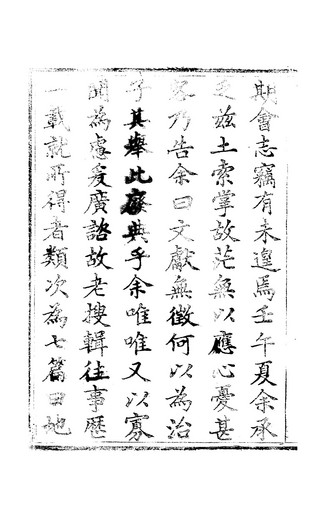 期會志竊有未遑焉壬午夏余承
乏茲土索掌故茫無以應心憂甚
乃告余曰文獻無徵何以為治
子其舉此廢典乎余唯唯又以寡
聞為慮爰廣諮故老搜輯往事歷
一載就所得者類次為七篇曰地